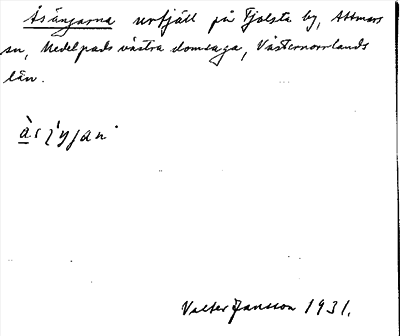 Åsängarna urfjäll på Fjolsta by, Attmars
sn, Medelpads västra domsaga, Västernorrlands
län.
Valter Jansson 1931.